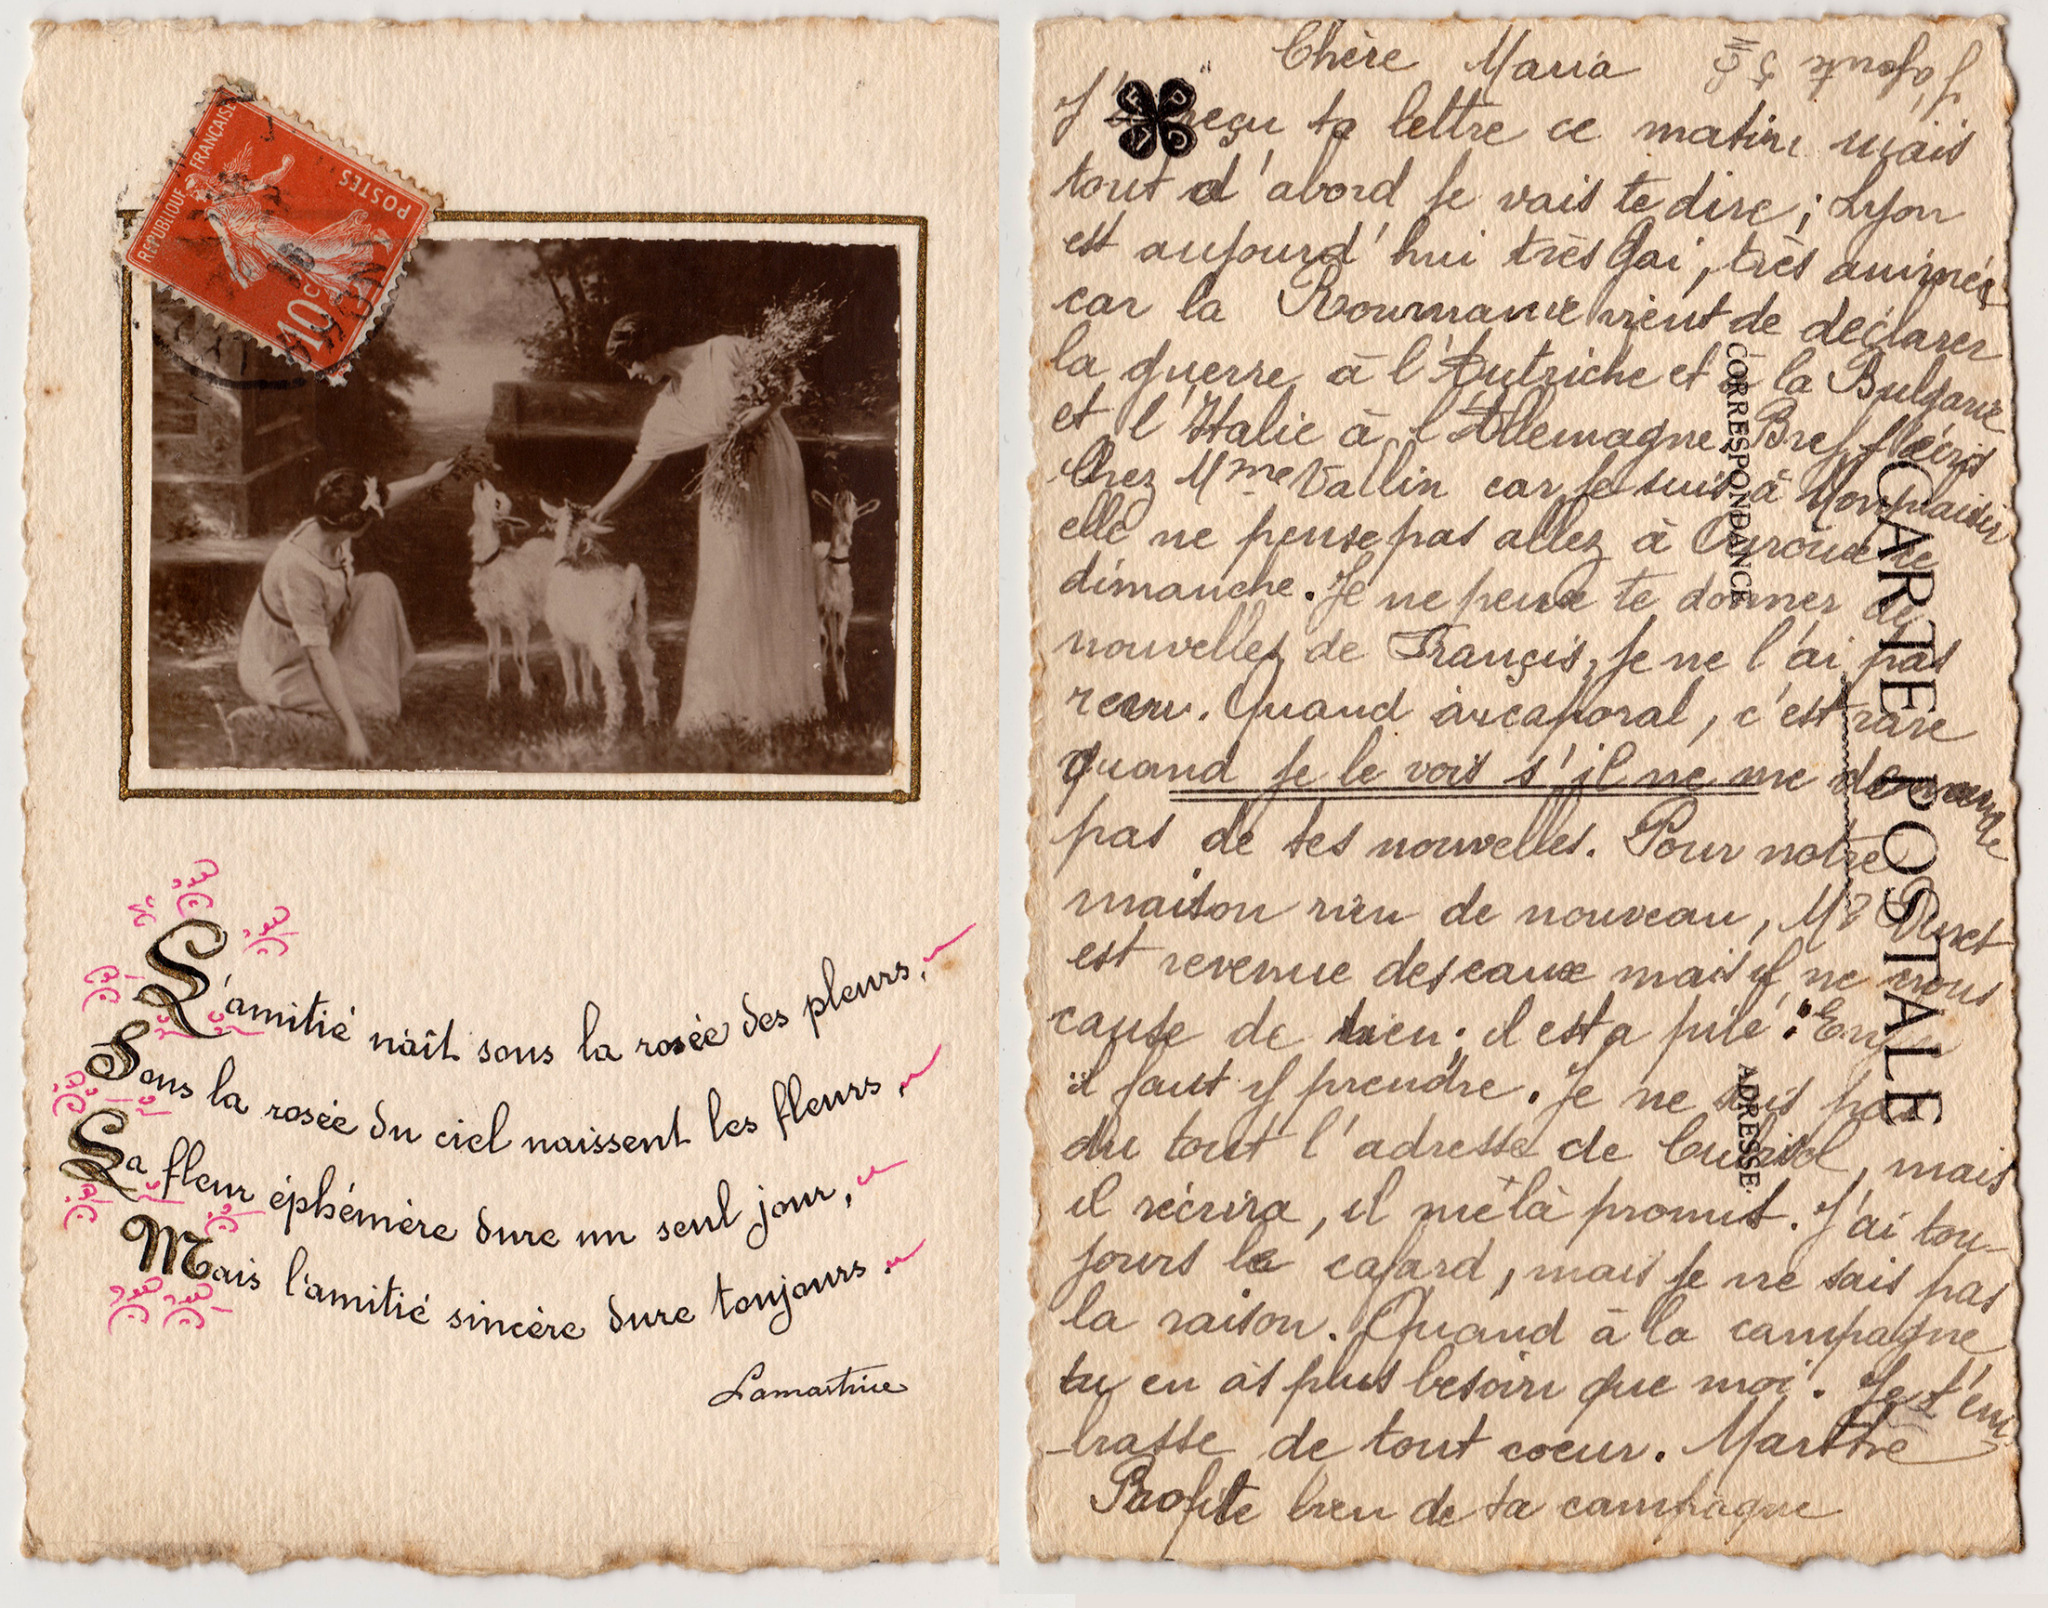 RÉPUBLIQUE FRANÇAISE
POSTES
10c
L'amitié nait sous la rosée des pleurs,
Sous la rosée du ciel naissent les fleurs,
La fleur éphémère dure un seul jour,
Mais l'amitié sincère dure toujours.
Lamartine
CARTE POSTALE
CORRESPONDANCE
ADRESSE.
Chère Maria
J' reçu ta lettre ce matin mais
tout d'abord je vais te dire ; Lyon
est aujourd'hui très gai, très animé
car la Roumanie vient de déclarer
la guerre à l'Autriche et à la Bulgarie
et l'Italie à l'Allemagne. Bref j'écris
Chez Mme Vallin car je suis à Monplaisir
elle ne pense pas allez à
dimanche. Je ne peux te donner de
nouvelles de Françis, je ne l'ai pas
revu. Quand au caporal, c'est rare
quand je le vois s'il ne me demande
pas de tes nouvelles. Pour notre
maison rien de nouveau, Mr
est revenue des eaux mais il ne nous
cause de rien; il est a pilé.
il faut y prendre. Je ne sais pas
du tout l'adresse de mais
il récrira, il me là promit. J'ai tou-
jours le cafard, mais je ne sais pas
la raison. Quand à la campagne
tu en as plus besoin que moi. Je t'em
-brasse de tout coeur. Marthe
Profite bien de ta campagne